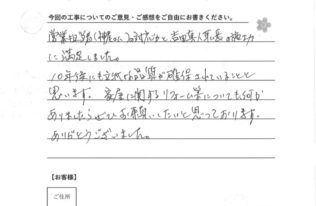 今回の工事についてのご意見・ご感想をご自由にお書きください。
営業担当 対応力と 施工力
に満足しました。
10年後にも立派な品質が確保されていることと
思います。家屋に関するリフォーム等についても何か
ありましたらぜひお願いしたいと思っております。
ありがとうございました。
【お客様】
ご住所